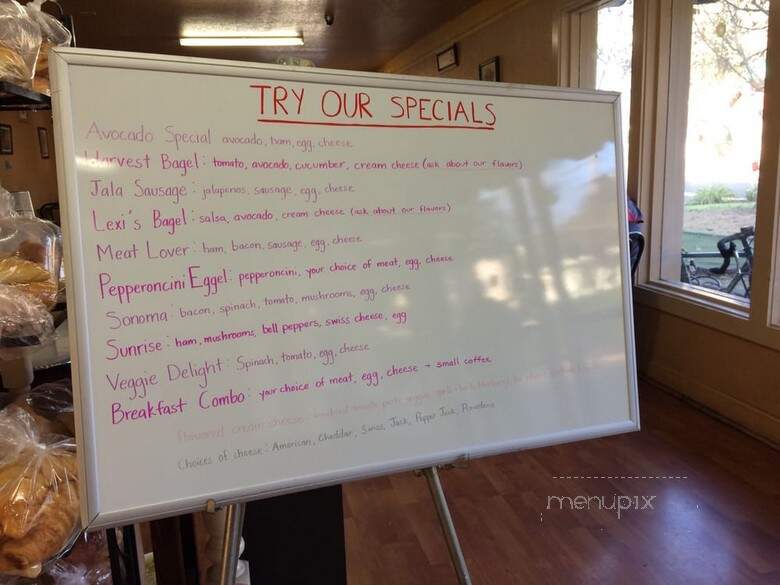 TRY OUR SPECIALS
Avocado Special avocado, ham, egg, cheese
Harvest Bagel: tomato, avocado, cucumber, cream cheese (ask about our flavors)
Jala Sausage: jalapenos, sausage, egg, cheese
Lexi's Bagel: salsa, avocado, cream cheese (ask about our flavors)
Meat Lover: ham, bacon, sausage, egg, cheese
Pepperoncini Eggel: pepperoncini, your choice of meat, egg, cheese
Sonoma: bacon, spinach, tomato, mushrooms, egg, cheese
Sunrise: ham, mushrooms, bell peppers, swiss cheese, egg
Veggie Delight: Spinach, tomato, egg, cheese
Breakfast Combo: your choice of meat, egg, cheese + small coffee
Flavored cream cheese:
Choices of cheese: American, Cheddar, Swiss, Jack, Pepper Jack, Provolone
menupix